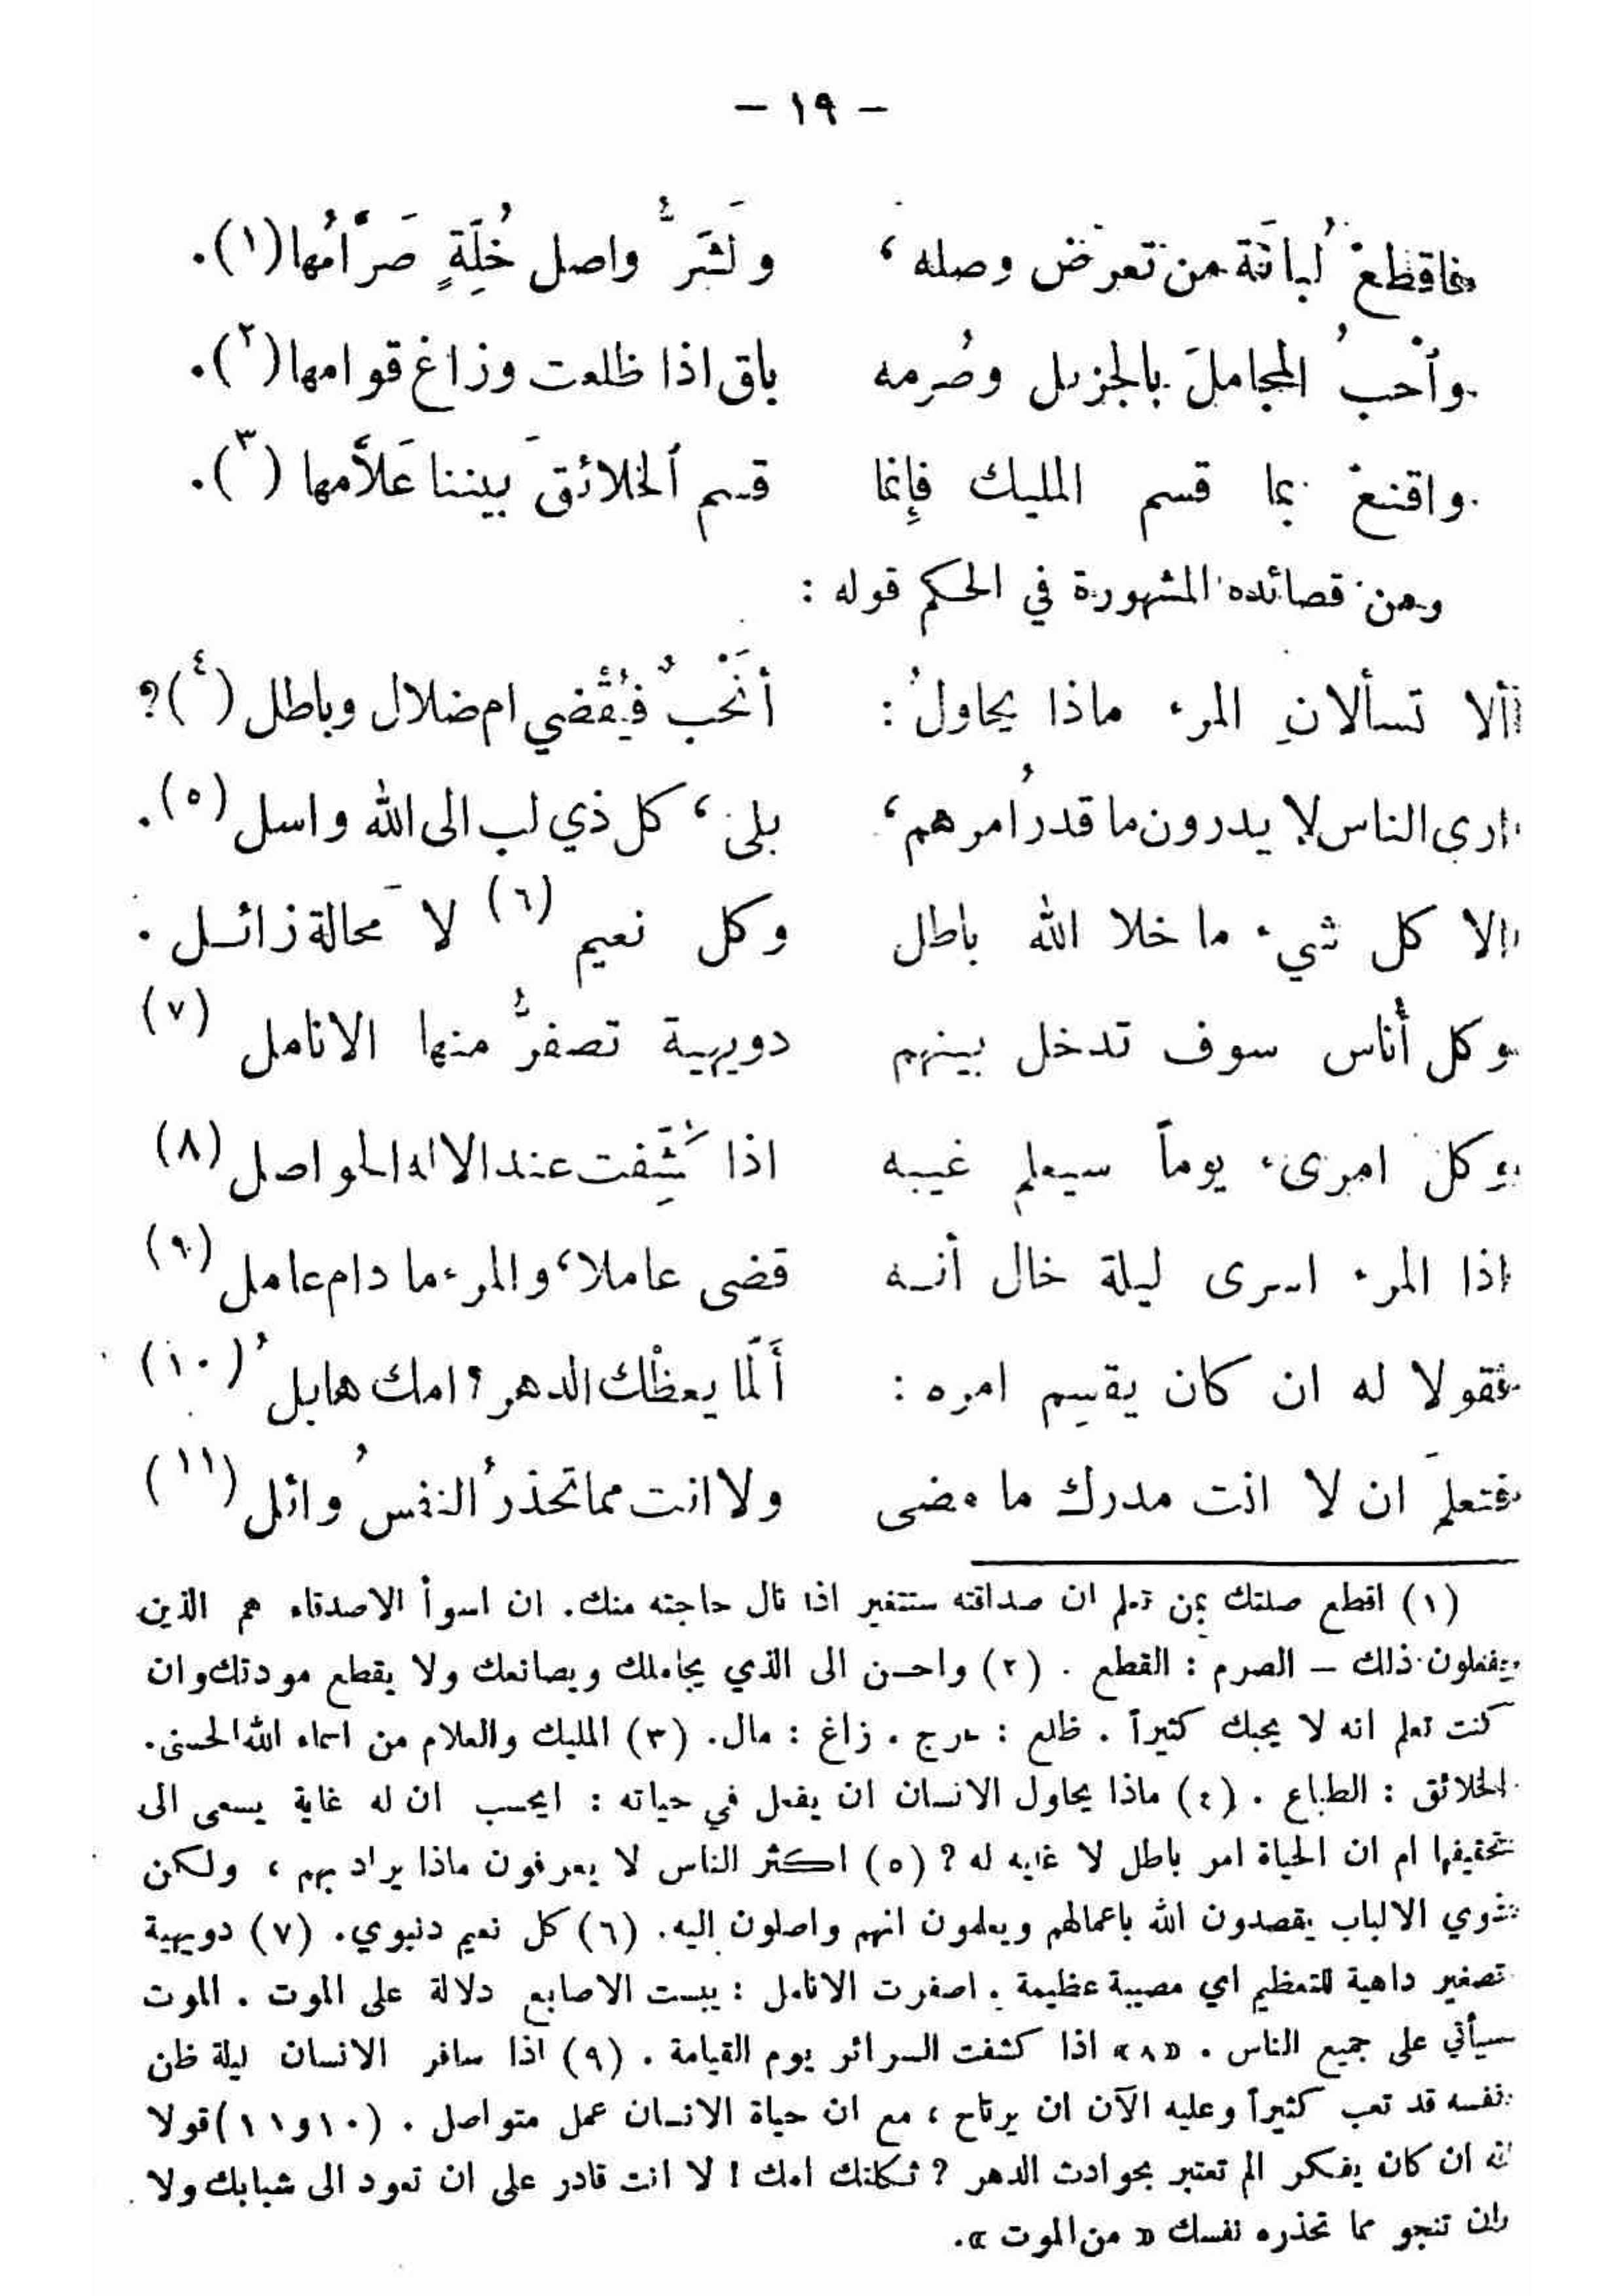 – ١٩ –
فاقطعْ لُبانَة من تعرَّض وصله ، ولَشَرُّ واصل خُلَّةٍ صَرَّامُها (١).
وأحبُ المجاملَ بالجزيل وصُرمه باق اذا ظلعت وزاغ قوامها (٢).
واقنعْ بما قسم المليك فإنما قسم ٱلخلائقَ بيننا عَلاَّمها (٣).
ومن قصائده المشهورة في الحكم قوله :
ألا تسألانِ المرء ماذا يحاولُ : أنَحْبٌ فيُقْضي ام ضلال وباطل (٤)؟
ارى الناس لا يدرون ما قدرُ امرهم ، بلى ، كل ذي لب الى الله واسل (٥).
الا كل شيء ما خلا الله باطل وكل نعيم (٦) لا مَحالة زائــل .
وكل أناس سوف تدخل بينهم دويهية تصفرُّ منها الانامل (٧)
وكل امرىء يوماً سيعلم غيبه اذا كُشِّفت عند الاله الحواصل (٨)
اذا المرء اسرى ليلة خال أنــه قضى عاملا، والمرء ما دام عامل (٩)
فقولا له ان كان يقسِم امره : أَلَمّا يعظْك الدهر ؟ امك هابلُ (١٠)
فتعلمَ ان لا انت مدرك ما مضى ولا انت مما تحذرُ النفسُ وائل (١١)
(١) اقطع صلتك بمن تعلم ان صداقته ستتغير اذا نال حاجته منك. ان اسوأ الاصدقاء هم الذين
يفعلون ذلك – الصرم : القطع . (٢) واحسن الى الذي يجاملك ويصانعك ولا يقطع مودتك وان
كنت تعلم انه لا يحبك كثيراً . ظلع : عرج . زاغ : مال. (٣) المليك والعلام من اسماء الله الحسنى.
الخلائق : الطباع . (٤) ماذا يحاول الانسان ان يفعل في حياته : ايحسب ان له غاية يسعى الى
تحقيقها ام ان الحياة امر باطل لا غايه له ؟ (٥) اكثر الناس لا يعرفون ماذا يراد بهم ، ولكن
ذوي الالباب يقصدون الله باعمالهم ويعلمون انهم واصلون إليه. (٦) كل نعيم دنيوي. (٧) دويهية
تصغير داهية للتعظيم اي مصيبة عظيمة . اصفرت الانامل : يبست الاصابع دلالة على الموت . الموت
سيأتي على جميع الناس . «٨» اذا كشفت السرائر يوم القيامة . (٩) اذا سافر الانسان ليلة ظن
نفسه قد تعب كثيراً وعليه الآن ان يرتاح ، مع ان حياة الانسان عمل متواصل . (١٠و١١) قولا
له ان كان يفكر الم تعتبر بحوادث الدهر ؟ ثكلتك امك ! لا انت قادر على ان تعود الى شبابك ولا
ان تنجو مما تحذره نفسك « من الموت ».